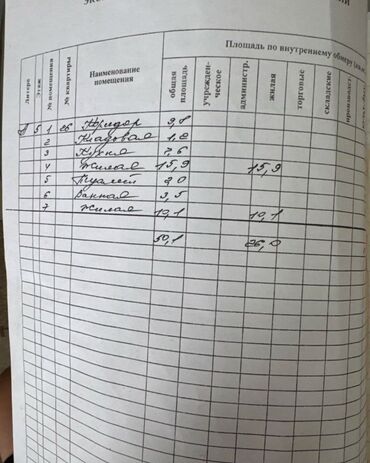 Площадь по внутреннему обмеру
Литера
Этаж
№ помещения
№ квартиры
Наименование помещения
общая площадь
учрежден-ческое
администр.
жилая
торговые
складские
производст.
5 1 26 Коридор 9,8
2 Кладовая 1,2
3 Кухня 7,6
4 Жилая 15,9 15,9
5 Туалет 2,0
6 Ванная 3,5
7 Жилая 10,1 10,1
50,1 26,0